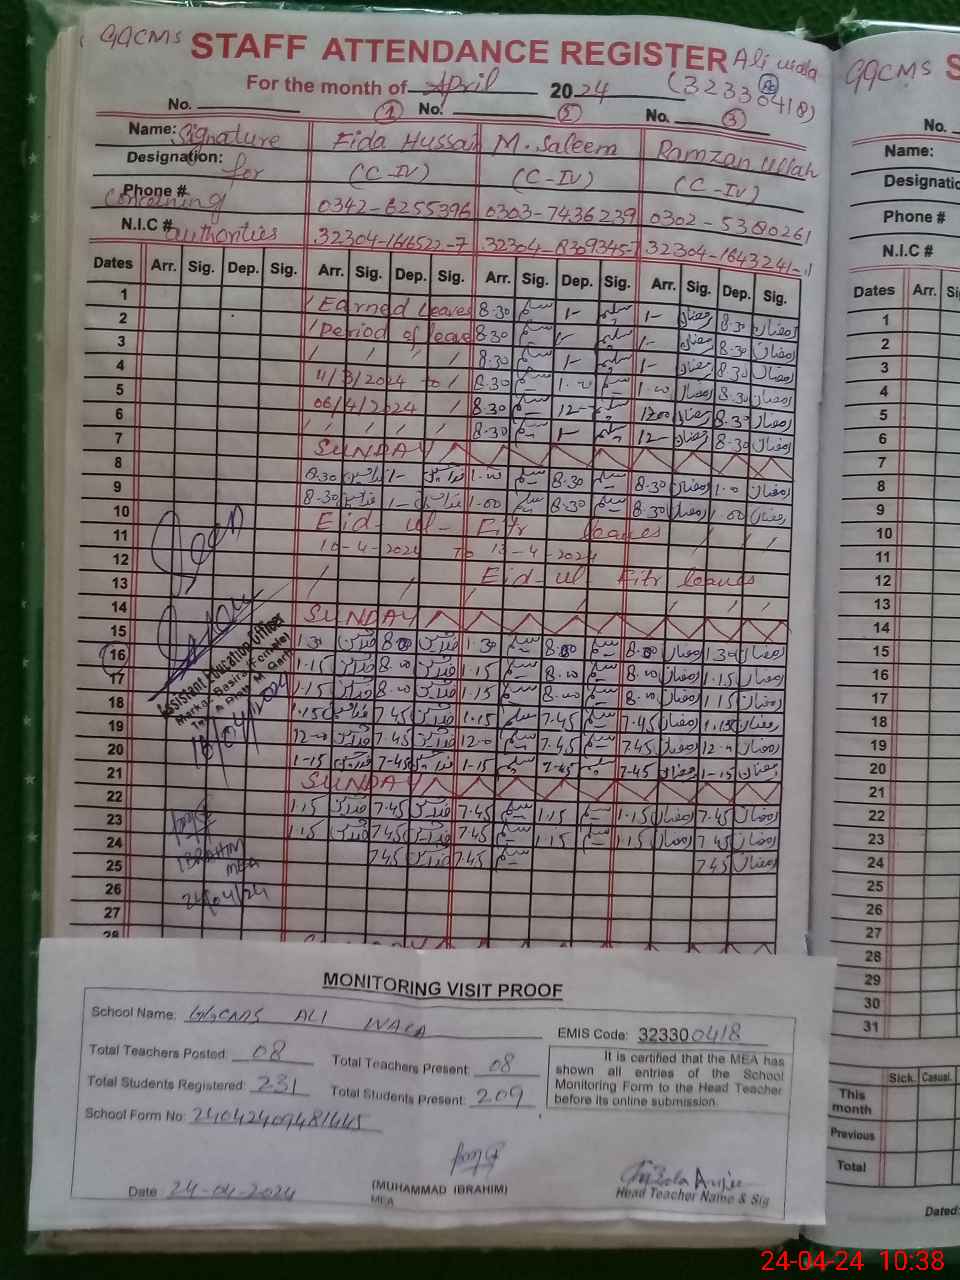 GGCMS STAFF ATTENDANCE REGISTER Ali wala
For the month of April 2024 (32330418)
No. ① No. ② No. ③
Name: Signature Fida Hussain M. Saleem Ramzan Ullah
Designation: for (C-IV) (C-IV) (C-IV)
Phone # Concerning 0342-6255396 0303-7436239 0302-5380261
N.I.C # authorities 32304-1616522-7 32304-8309345-7 32304-1643241-
Dates Arr. Sig. Dep. Sig. Arr. Sig. Dep. Sig. Arr. Sig. Dep. Sig. Arr. Sig. Dep. Sig.
1 Earned Leaves 8.30 سلیم 1- سلیم 1- رمضان 8.30 رمضان
2 Period of leave 8.30 سلیم 1- سلیم 1- رمضان 8.30 رمضان
3 / / / / 8.30 سلیم 1- سلیم 1- رمضان 8.30 رمضان
4 11/3/2024 to / 8.30 سلیم 1.00 سلیم 1.00 رمضان 8.30 رمضان
5 06/4/2024 / 8.30 سلیم 12- سلیم 1200 رمضان 8.30 رمضان
6 / / / / 8.30 سلیم 1- سلیم 12- رمضان 8.30 رمضان
7 SUNDAY
8 8.30 1- 1.00 سلیم 8.30 سلیم 8.30 رمضان 1.0 رمضان
9 8.30 1-0 1.00 سلیم 8.30 سلیم 8.30 رمضان 1.00 رمضان
10 Eid-ul-Fitr leaves / /
11 10-4-2024 To 13-4-2024
12 Eid-ul Fitr leaves
13 / / / / /
14 SUNDAY
15 1.30 8.00 1.30 سلیم 8.00 سلیم 8.00 رمضان 130 رمضان
16 1.15 8.00 1.15 سلیم 8.00 سلیم 8.00 رمضان 1.15 رمضان
17 1.15 8.00 1.15 سلیم 8.00 سلیم 8.00 رمضان 115 رمضان
18 1.15 7.45 1.15 سلیم 7.45 سلیم 7.45 رمضان 1.15 رمضان
19 12-0 7.45 12-0 سلیم 7.45 سلیم 7.45 رمضان 12-0 رمضان
20 1-15 7-45 1-15 سلیم 7-45 سلیم 7-45 رمضان 1-15 رمضان
21 SUNDAY
22 1.15 7.45 7.45 سلیم 1.15 سلیم 1.15 رمضان 7.45 رمضان
23 1.15 7.45 7.45 سلیم 1.15 سلیم 1.15 رمضان 7.45 رمضان
24 745 7.45 سلیم 745 رمضان
25
26
27
28
Assistant Education Officer
16/04/2024
IBRAHIM
MEA
24/04/24
MONITORING VISIT PROOF
School Name: GGCMS ALI WALA EMIS Code: 32330 0418
Total Teachers Posted: 08 Total Teachers Present: 08
Total Students Registered: 231 Total Students Present: 209
School Form No: 24042409481445
It is certified that the MEA has
shown all entries of the School
Monitoring Form to the Head Teacher
before its online submission.
Date 24-04-2024 (MUHAMMAD IBRAHIM) Head Teacher Name & Sig
MEA
GGCMS S
No.
Name:
Designatio
Phone #
N.I.C #
Dates Arr. Si
1
2
3
4
5
6
7
8
9
10
11
12
13
14
15
16
17
18
19
20
21
22
23
24
25
26
27
28
29
30
31
Sick. Casual.
This
month
Previous
Total
Dated:
24-04-24 10:38